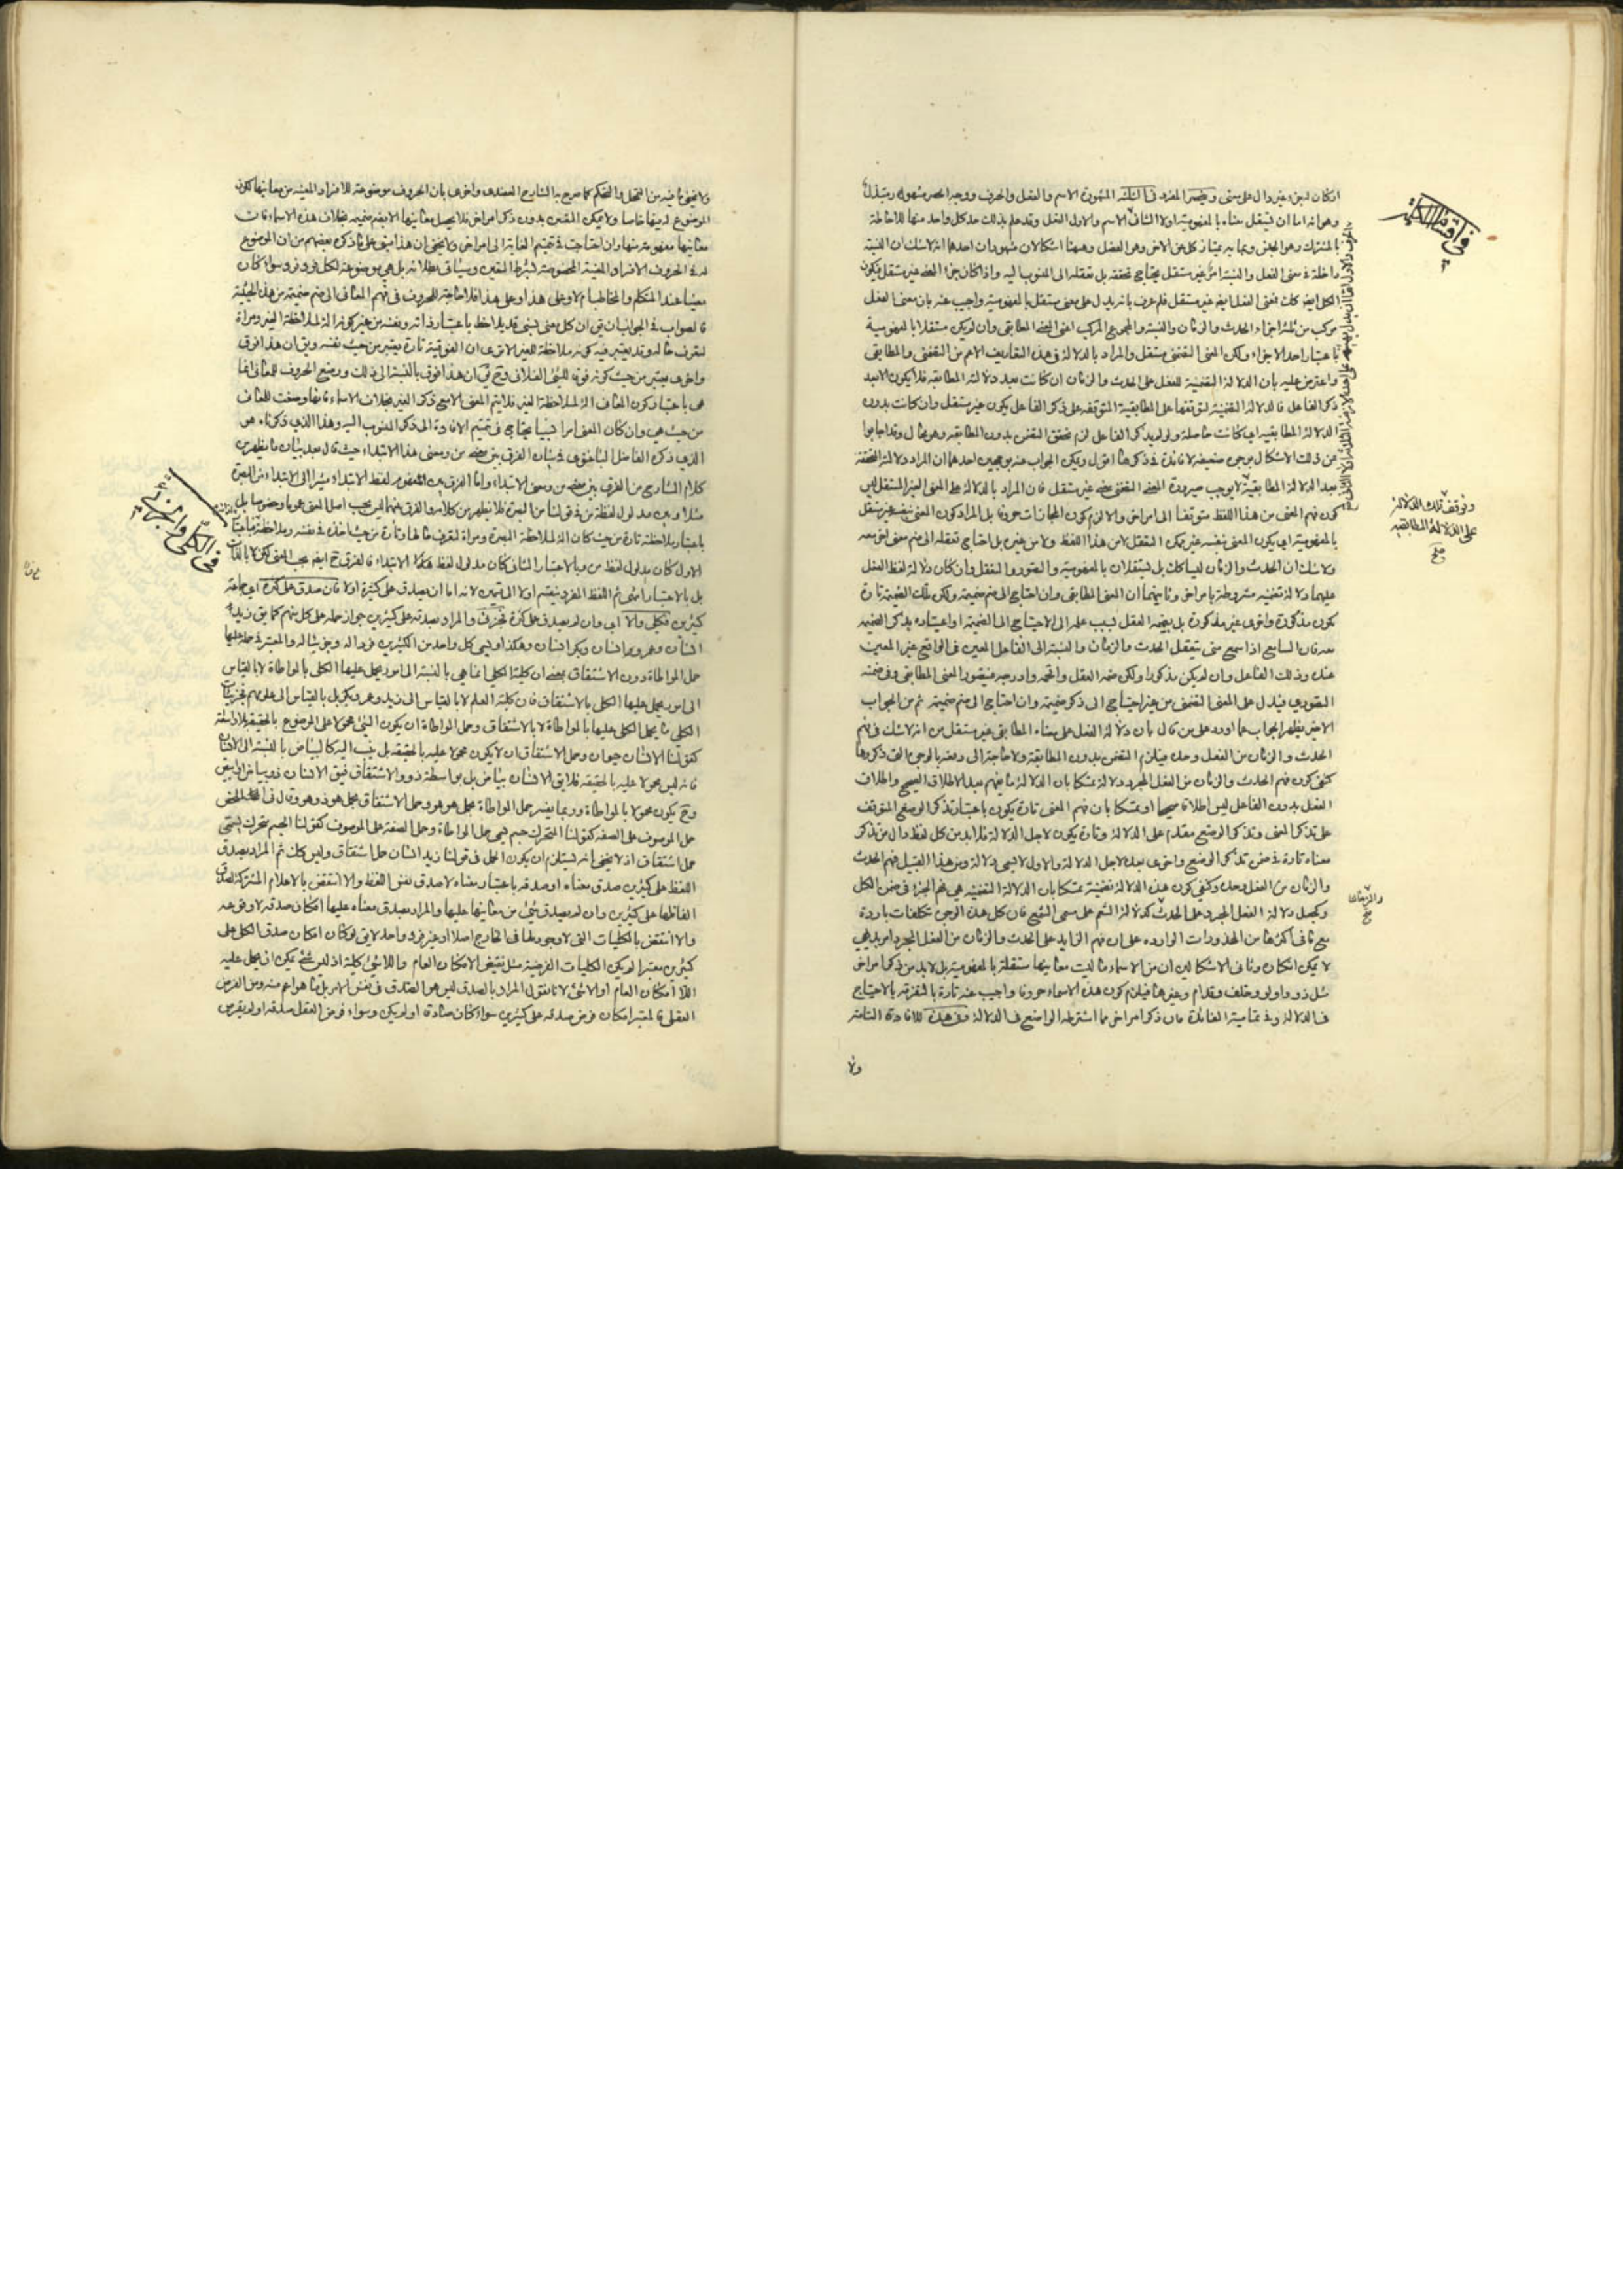 امكان لبن وغير دال على معنى وينحصر المفرد في الثلثة المشهورة الاسم والفعل والحرف ووجه الحصر مشهور
وهو انه اما ان يستقل معناه بالمفهومية اولا الثاني الاسم والاول الفعل وقد علم بذلك حد كل واحد منها للاحاطة
بالمشترك وهو الجنس وبما به يمتاز كل عن الاخر وهو الفصل وههنا اشكالان مشهوران احدهما انه لا شك ان النسبة
داخلة في معنى الفعل والنسبة امر غير مستقل يحتاج تحققه بل تعقله الى المنسوب اليه واذا كان جزء المعنى غير مستقل فيكون
الكل ايضا كك فمعنى الفعل ايضا غير مستقل فلم عرف بانه يدل على معنى مستقل بالمفهومية واجيب عنه بان معنى الفعل
مركب من ثلثة اجزاء الحدث والزمان والنسبة والمجموع المركب اعنى المعنى المطابقي وان لم يكن مستقلا بالمفهومية
باعتبار احد الاجزاء ولكن المعنى التضمني مستقل والمراد بالدلالة في هذه التعاريف الاعم من التضمني والمطابقي
واعترض عليه بان الدلالة التضمنية للفعل على الحدث والزمان ان كانت بعد دلالته المطابقة فلا يكون الا بعد
ذكر الفاعل فالدلالة التضمنية لتوقفها على المطابقية المتوقفة على ذكر الفاعل يكون غير مستقل وان كانت بدون
الدلالة المطابقية اي كانت حاصلة ولو لم يذكر الفاعل لزم تحقق التضمن بدون المطابقة وهو محال وقد اجابوا
عن ذلك الاشكال بوجوه ضعيفة لا فائدة في ذكرها اقول ويمكن الجواب عنه بوجهين احدهما ان المراد دلالته المتحققة
بعد الدلالة المطابقية لا يوجب صيرورة المعنى التضمني معنى غير مستقل فان المراد بالدلالة على المعنى الغير المستقل ليس
كون فهم المعنى من هذا اللفظ متوقفا الى امر اخر والا لزم كون المجازات حروفا بل المراد كون المعنى بنفسه غير مستقل
بالمفهومية اي يكون المعنى بنفسه غير ممكن التعقل لا من هذا اللفظ ولا من غيره بل احتاج تعقله الى ضم معنى اخر معه
ولا شك ان الحدث والزمان ليسا كك بل مستقلان بالمفهومية والتصور والتعقل وان كان دلالة لفظ الفعل
عليهما دلالة تضمنية مشروطة بامر اخر وثانيهما ان المعنى المطابقي وان احتاج الى ضم ضميمة ولكن تلك الضميمة تارة
يكون مذكورة واخرى غير مذكورة بل يضمه العقل بسبب علمه الى الاحتياج الى الضميمة او اعتياده بذكر الضميمة
معه فان السامع اذا سمع متى يتعقل الحدث والزمان والنسبة الى الفاعل المعين في الواقع غير المعين
عنده وذلك الفاعل وان لم يكن مذكورا ولكن ضمه العقل واقحمه وادرجه فيتصور المعنى المطابقي وفي ضمنه
التصوري فيدل على المعنى التضمني من غير احتياج الى ذكر ضميمة وان احتاج الى ضم ضميمة ثم من الجواب
الاخير يظهر الجواب عما اورد على من قال بان دلالة الفعل على معناه المطابقي غير مستقل من انه لا شك في فهم
الحدث والزمان من الفعل وحده فيلزم التضمن بدون المطابقة ولا حاجة الى دفعها بالوجوه التي ذكروها
الفعل بدون الفاعل ليس اطلاقا صحيحا او متمسكا بان فهم المعنى تارة يكون باعتبار تذكر الوضع المتوقف
على تذكر المعنى وتذكر الوضع مقدم على الدلالة وتارة يكون لاجل الدلالة فلابد من كل لفظ دال من تذكر
معناه تارة في ضمن تذكر الوضع واخرى بعده لاجل الدلالة والاول لا يسمى دلالة ومن هذا القبيل فهم الحدث
والزمان من الفعل وحده وكنفي كون هذه الدلالة تضمنية متمسكا بان الدلالة التضمنية هي فهم الجزء في ضمن الكل
وكجعل دلالة الفعل المجرد على الحدث كدلالة الاسم على مسمى فان كل هذه الوجوه تكلفات باردة
مع ما في اكثرها من المحذورات الواردة على ان فهم الزايد على الحدث والزمان من الفعل المجرد امر بديهي
لا يمكن انكاره وثاني الاشكالين ان من الاسماء ما ليست معانيها مستقلة بالمفهومية بل لابد من ذكر امر اخر
مثل ذو واولو وخلف وقدام وغيرها فيلزم كون هذه الاسماء حروفا واجيب عنه تارة بالتفرقة بالاحتياج
في الدلالة وفي تمامية الفائدة فان ذكر امر اخر مما اشترطه الواضع في الدلالة وفي هذه للافادة التامة
ولا
في اقسام الكلمة
وتوقف تلك الدلالة
على الدلالة المطابقية
صح
والزمان
صح
ولا يخفى ما فيه من التمحل والتحكم كما صرح به الشارح العضدي واخرى بان الحروف موضوعة للافراد المعينة من معانيها لكون
الموضوع له فيها خاصا ولا يمكن التعين بدون ذكر امر اخر فلا يحصل معانيها الا بضم ضميمة بخلاف هذه الاسماء فان
معانيها مفهومة منها وان احتاجت في تتميم الفائدة الى امر اخر ولا يخفى ان هذا مبني على ما ذكره بعضهم من ان الموضوع
له في الحروف الافراد المعينة المخصوصة بشرط التعين وسيأتي بطلانه بل هي موضوعة لكل فرد فرد سواء كان
معينا عند المتكلم والمخاطب ام لا وعلى هذا فلا حاجة للحروف في فهم المعاني الى ضم ضميمة من هذه الحيثية
فالصواب في الجواب ان يق ان كل معنى نسبي قد يلاحظ باعتبار ذاته ونفسه من غير كونه الة لملاحظة الغير ومراة
لتعرف حاله وقد يعتبر فيه كونه ملاحظة للغير الا ترى ان الفوقية تارة يعتبر من حيث نفسه ويق ان هذا فوق
واخرى يعتبر من حيث كونه فوقا للشئ الفلاني وح يق ان هذا فوق بالنسبة الى ذلك ووضع الحروف للمعاني انما
هي باعتبار كون المعاني الة لملاحظة الغير فلا يتم المعنى الا مع ذكر الغير بخلاف الاسماء فانها وضعت للمعاني
من حيث هي وان كان المعنى امرا نسبيا يحتاج في تتميم الافادة الى ذكر المنسوب اليه وهذا الذي ذكرناه هو
الذي ذكره الفاضل الباغنوي في بيان الفرق بين معنى من ومعنى هذا الابتداء حيث قال بعد بيان ما يظهر من
كلام الشارح من الفرق بين معنى من ومعنى الابتداء واما الفرق بين المفهوم من لفظ الابتداء مشيرا الى الابتداء من البصرة
مثلا وبين مدلول لفظة من في قولنا من البصرة فلا يظهر من كلامه والفرق بينهما ليس بحسب اصل المعنى عموما وخصوصا بل
باعتبار ملاحظته تارة من حيث كان الة لملاحظة البصرة ومراة لتعرف حالها وتارة من حيث اخذه في نفسه وملاحظته فباعتبار
الاول كان مدلول لفظ من وبالاعتبار الثاني كان مدلول لفظ هذا الابتداء فالفرق ح ايضا بحسب المعنى لكن لا بالذات
بل بالاعتبار انتهى ثم اللفظ المفرد ينقسم اولا الى قسمين لانه اما ان يصدق على كثرة اولا فان صدق على كثرة اي جماعة
كثيرين فكلي والا اي وان لم يصدق على كثرة فجزئي والمراد بصدقه على كثيرين جواز حمله على كل منهم كما يق زيد
انسان وعمرو انسان وبكر انسان وهكذا وليسمى كل واحد من الكثيرين فردا له وجزئيا له والمعتبر في حمله عليها
حمل المواطاة دون الاشتقاق بمعنى ان كلية الكلي انما هي بالنسبة الى امور يحمل عليها الكلي بالمواطاة لا بالقياس
الى امور يحمل عليها الكلي بالاشتقاق فان كلية العلم لا بالقياس الى زيد وعمرو وبكر بل بالقياس الى علومهم فجزئيات
الكلي ما يحمل الكلي عليها بالمواطاة لا بالاشتقاق وحمل المواطاة ان يكون الشئ محمولا على الموضوع بالحقيقة بلا واسطة
كقولنا الانسان حيوان وحمل الاشتقاق ان لا يكون محمولا عليه بالحقيقة بل ينسب اليه كالبياض بالنسبة الى الانسان
فانه ليس محمولا عليه بالحقيقة فلا يق الانسان بياض بل بواسطة ذو والاشتقاق فيق الانسان ذو بياض او ابيض
وح يكون محمولا بالمواطاة وربما يفسر حمل المواطاة بحمل هو هو وحمل الاشتقاق بحمل هو ذو هو
حمل الموصوف على الصفة كقولنا المتحرك جسم يسمى حمل المواطاة وحمل الصفة على الموصوف كقولنا الجسم متحرك يسمى
حمل اشتقاق اذ لا يخفى انه يستلزم ان يكون الحمل في قولنا زيد انسان حمل اشتقاق وليس كك ثم المراد بصدق
اللفظ على كثيرين صدق معناه او صدقه باعتبار معناه لا صدق نفس اللفظ والا انتقض بالاعلام المشتركة لصدق
الفاظها على كثيرين وان لم يصدق شئ من معانيها عليها والمراد بصدق معناه عليها امكان صدقه لا وقوعه
والا انتقض بالكليات التي لا وجود لها في الخارج اصلا او غير فرد واحد لا يق لو كان امكان صدق الكلي على
كثيرين معتبرا لم يكن الكليات الفرضية مثل نقيض الامكان العام واللاشئ كلية اذ ليس شئ يمكن ان يحمل عليه
اللا امكان العام او اللاشئ لانا نقول المراد بالصدق ليس هو الصدق في نفس الامر بل ما هو اعم منه ومن الفرض
العقلي فالمعتبر امكان فرض صدقه على كثيرين سواء كان صادقا او لم يكن وسواء فرض العقل صدقه او لم يفرض
في الكلي والجزئي